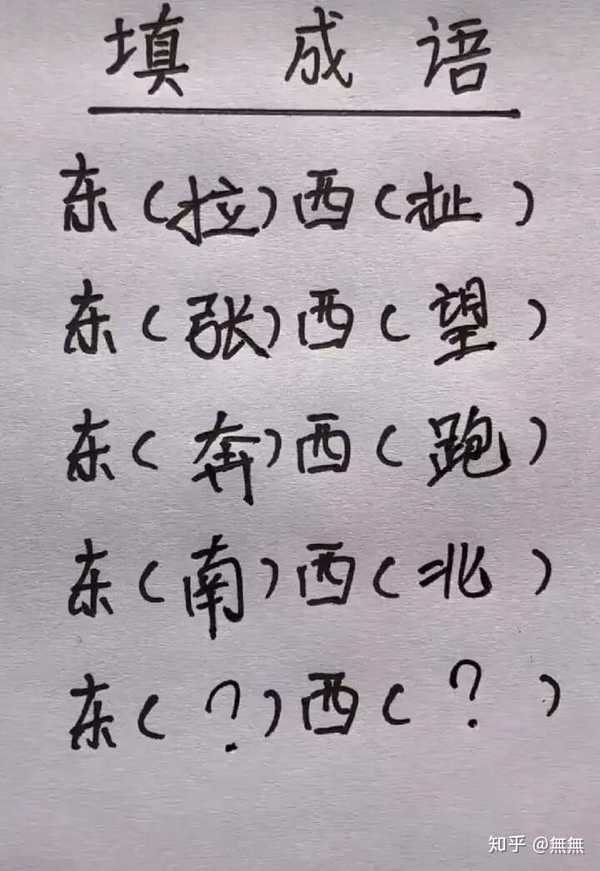 填 成 语
东(拉)西(扯)
东(张)西(望)
东(奔)西(跑)
东(南)西(北)
东(?)西(?)
知乎 @無無